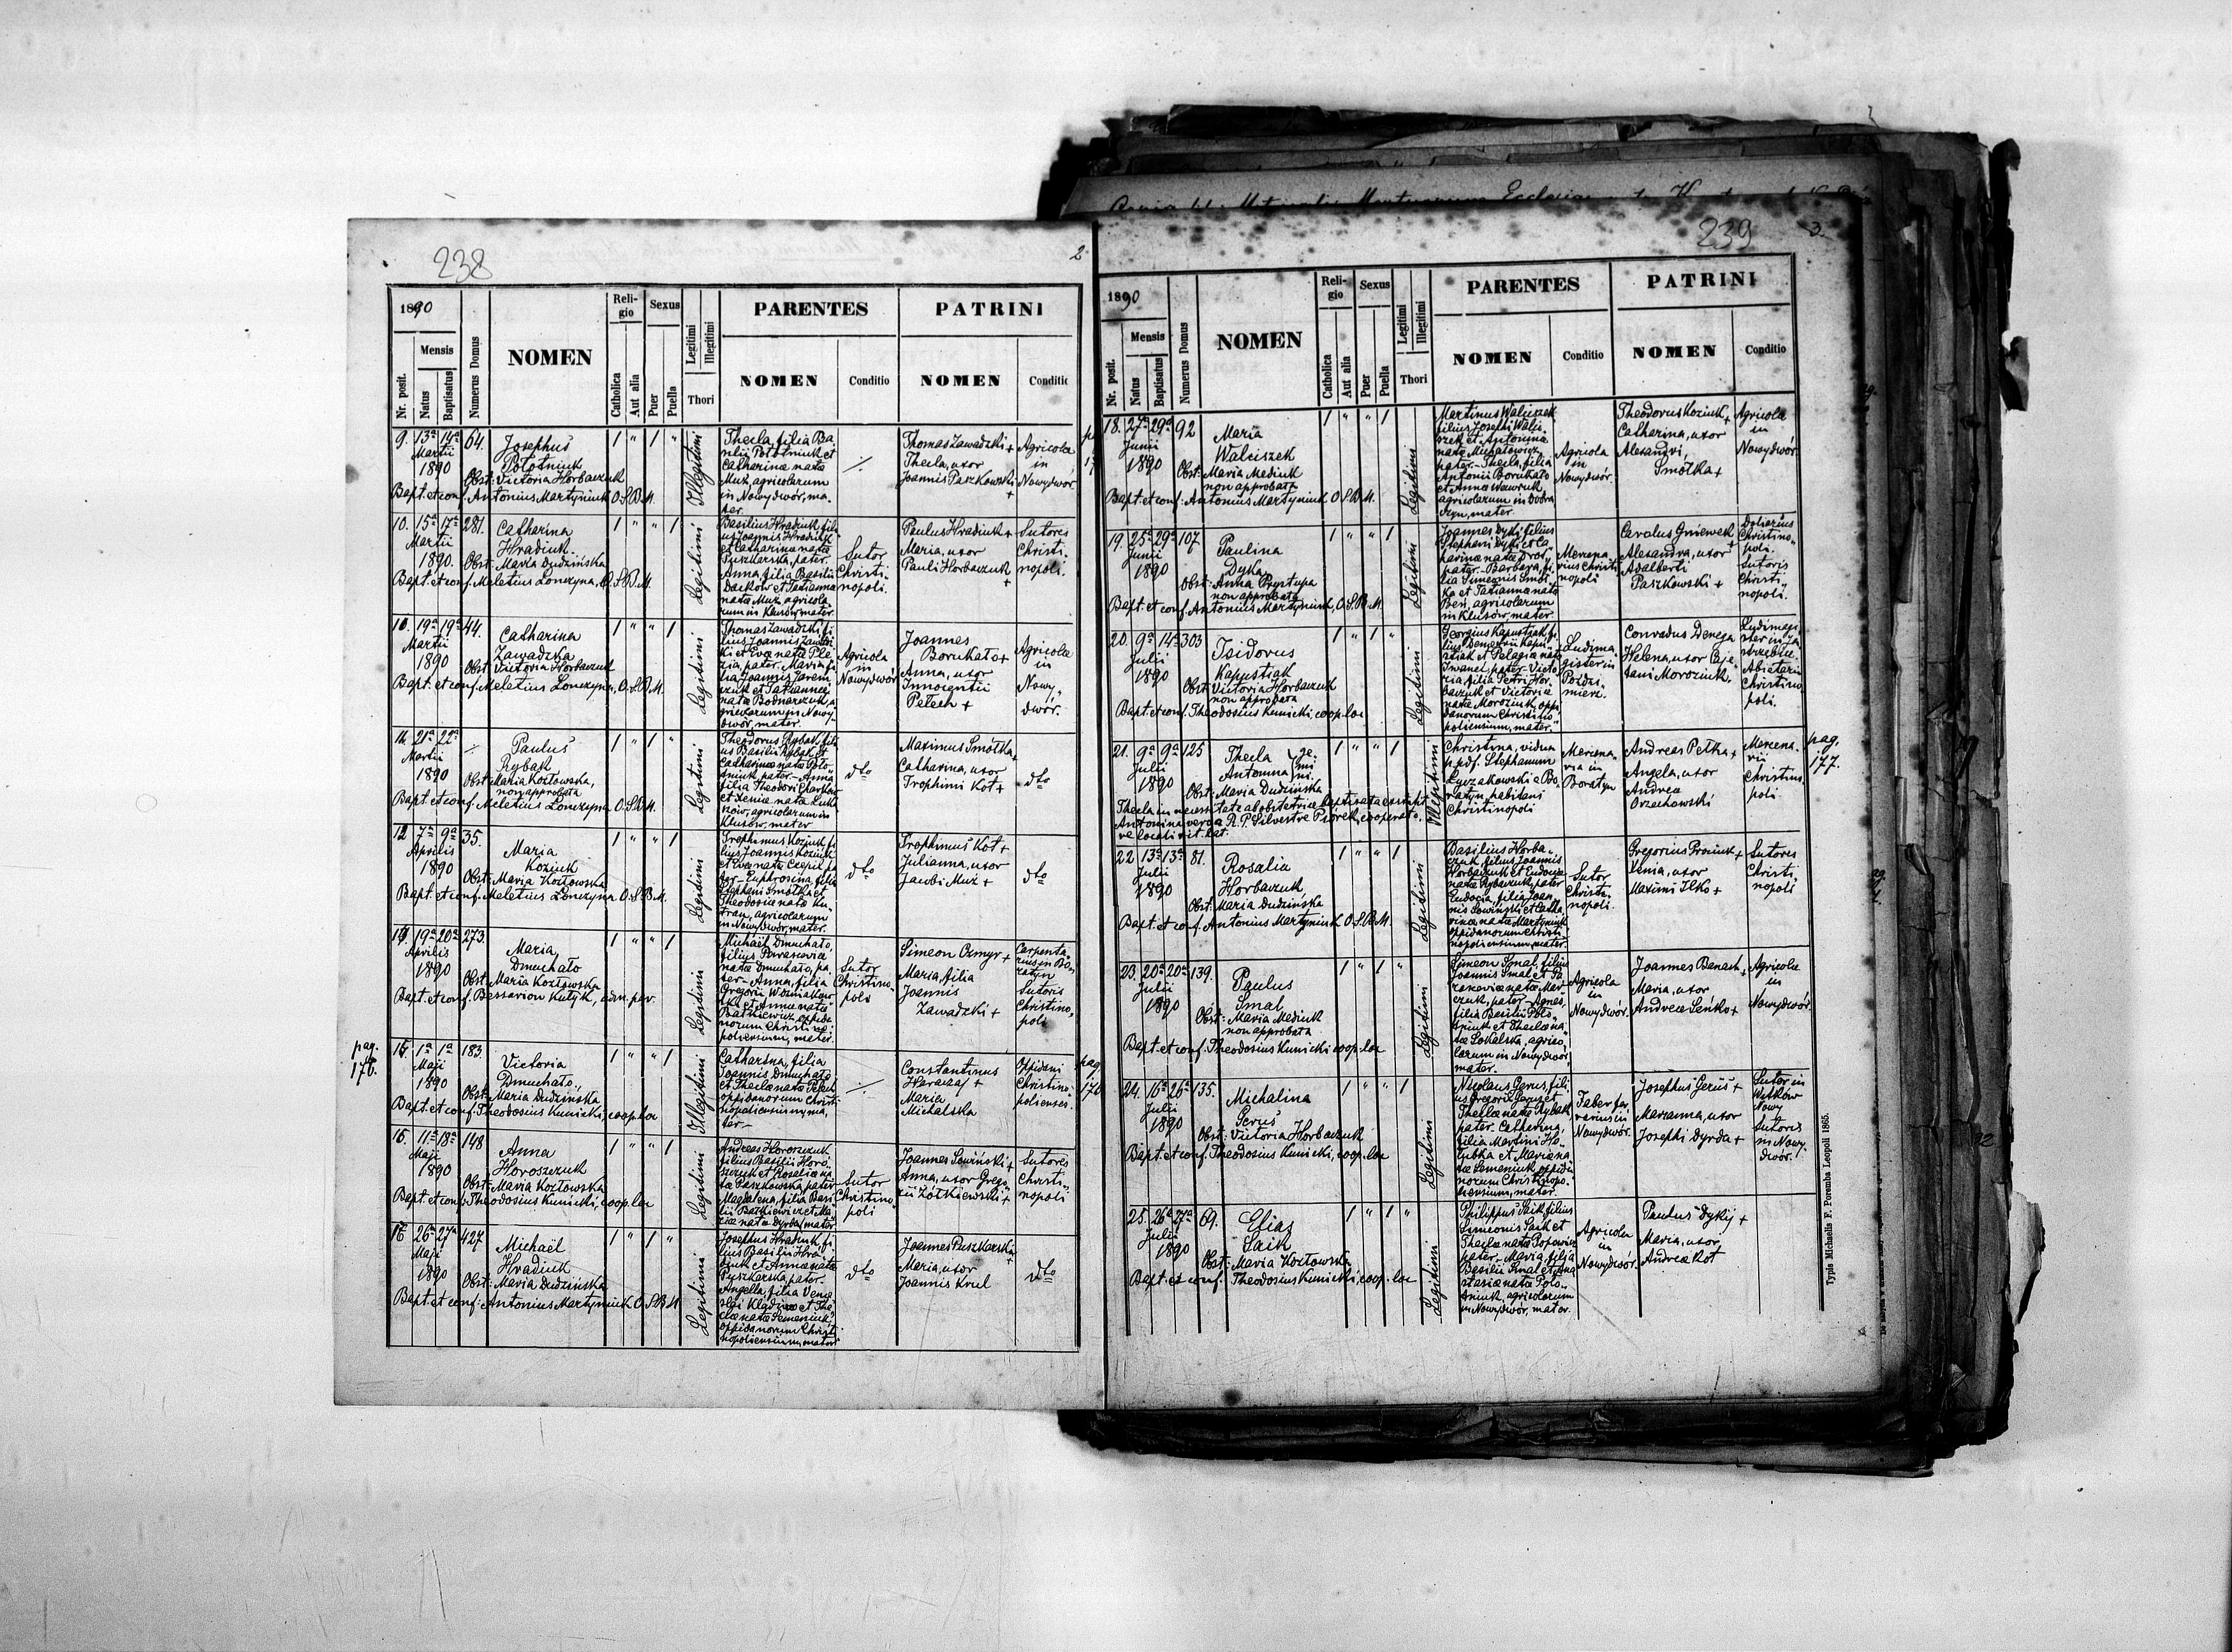 238
2
1890
Nr. posit.
Mensis
Natus
Baptisatus
Numerus Domus
NOMEN
Religio
Catholica
Aut alia
Sexus
Puer
Puella
Legitimi
Illegitimi
Thori
PARENTES
NOMEN
Conditio
PATRINI
NOMEN
Conditio
9. 13a 14a 64. Josephus
Martii
1890
Połotniuk
Obst: Victoria Horbaczuk
Bapt. et conf. Antonius Martyniuk O.S.B.M.
Illegitimi
Thecla, filia Ba-
silii Połotniuk et
Catharina nata
Muż, agricolarum
in Nowydwór, ma-
ter.
Thomas Zawadzki +
Thecla, uxor
Joannis Paszkowski
+
Agricola
in
Nowydwór
10. 15a 17a 281. Catharina
Martii
1890.
Hradiuk
Obst: Maria Dudzińska
Bapt. et conf. Meletius Lonczyna, O.S.B.M.
Legitimi
Basilius Hradiuk, fili-
us Joannis Hradiuk
et Catharina nata
Puszkarska, pater.
Anna, filia Basilii
Daćkow et Tatianna
nata Muż, agricola-
rum in Klusów, mater
Sutor
Christi-
nopoli.
Paulus Hradiuk +
Maria, uxor
Pauli Horbaczuk
+
Sutores
Christi-
nopoli.
10. 19a 19a 44. Catharina
Martii
1890
Zawadzka
Obst: Victoria Horbaczuk
Bapt. et conf. Meletius Lonczyna, O.S.B.M.
Legitimi
Thomas Zawadzki, fi-
lius Joannis Zawadz-
ki et Eva nata Ple-
zia, pater. Maria, fi-
lia Joannis Jarem-
czuk et Tatianna
nata Bodnarczuk, a-
gricolarum in Nowy-
dwór, mater.
Agricola
in
Nowydwór
Joannes
Borukało +
Anna, uxor
Innocentii
Pełech +
Agricola
in
Nowy-
dwór.
11. 21a 22a Paulus
Martii
1890
Rybak
Obst: Maria Kozłowska,
non approbata
Bapt. et conf. Meletius Lonczyna O.S.B.M.
Legitimi
Theodorus Rybak, fili-
us Basilii Rybak et
Catharina nata Poło-
tniuk, pater. Anna
filia Theodori Charkow
et Xenia nata Łuka-
ków, agricolarum in
Klusów, mater
dto
Maximus Smółka +
Catharina, uxor
Trophimi Kot +
dto
12. 7a 9a 35. Maria
Aprilis
1890
Koziuk
Obst: Maria Kozłowska
Bapt. et conf. Meletius Lonczyna O.S.B.M.
Legitimi
Trophimus Koziuk, fi-
lius Joannis Koziuk
et Eva nata Czepil, pa-
ter. Euphrosina, filia
Stephani Smółka et
Theodosia nata Ku-
tran, agricolarum
in Nowydwór, mater.
dto
Trophimus Kot +
Julianna, uxor
Jacobi Muż +
dto
19a 20a 273. Maria
Aprilis
1890
Dmuchało
Obst: Maria Kozłowska
Bapt. et conf. Bessarion Kutyk, adm. par.
Legitimi
Michaël Dmuchało,
filius Parasceviæ
nata Dmuchało, pa-
ter. Anna, filia
Gregorii Woźniakow-
ski et Anna nata
Bałkiewicz, oppida-
norum Christino-
poliensium, mater.
Sutor
Christino-
poli
Simeon Ozmyr +
Maria, filia
Joannis
Zawadzki +
Carpenta-
rius in Bo-
ratyn
Sutoris
Christino-
poli
pag.
176.
1a 1a 183. Victoria
Maji
1890
Dmuchało.
Obst: Maria Dudzińska
Bapt. et conf. Theodosius Kunicki, coop. loc
Illegitimi
Catharina, filia
Joannis Dmuchało
et Thecla nata Pełech
oppidanorum Christi-
nopoliensium, ma-
ter.
Constantinus
Haraczaj +
Maria
Michalska
Oppidani
Christino-
polienses.
pag.
176
15. 11a 18a 148 Anna
Maji
1890
Horoszczuk
Obst: Maria Kozłowska
Bapt. et conf. Theodosius Kunicki, coop. loc
Legitimi
Andreas Horoszczuk
filius Basilii Horo-
szczuk et Rosalia na-
ta Paszkowska, pater
Magdalena, filia Basi-
lii Bałkiewicz et Ma-
ria nata Dyrda, mater
Sutor
Christino-
poli
Joannes Sawiński +
Anna, uxor Grego-
rii Żółkiewski +
Sutores
Christi-
nopoli
16. 26a 27a 427 Michaël
Maji
1890
Hradiuk
Obst: Maria Dudzińska
Bapt. et conf: Antonius Martyniuk O.S.B.M
Legitimi
Josephus Hradiuk, fi-
lius Basilii Hra-
diuk et Anna nata
Puszkarska, pater.
Angella, filia Vence-
slai Kladiwo et The-
cla nata Semeniuk,
oppidanorum Christi-
nopoliensium, mater
dto
Joannes Puszkarski +
Maria, uxor
Joannis Krul
dto
239
3.
1890
Nr. posit.
Mensis
Natus
Baptisatus
Numerus Domus
NOMEN
Religio
Catholica
Aut alia
Sexus
Puer
Puella
Legitimi
Illegitimi
Thori
PARENTES
NOMEN
Conditio
PATRINI
NOMEN
Conditio
18. 27a 29a 92 Maria
Junii
1890
Walciszek
Obst: Maria Mediuk
non approbata
Bapt. et conf: Antonius Martyniuk O.S.B.M.
Legitimi
Martinus Walciszek
filius Josephi Walci-
szek et Antonina
nata Michałowicz,
pater. Thecla, filia
Antonii Borukało
et Anna Wawruk
agricolarum in Dobra-
czyn, mater.
Agricola
in
Nowydwór.
Theodorus Koziuk +
Catharina, uxor
Alexandri,
Smółka +
Agricola
in
Nowydwór
19. 25a 29a 107. Paulina
Junii
1890
Dyka
Obst: Anna Prystupa
non approbata
Bapt. et conf. Antonius Martyniuk, O.S.B.M.
Legitimi
Joannes Dyki, filius
Stephani Dyki et Ca-
pater. Barbara, fi-
lia Simeonis Smół-
ka et Tatianna nata
Beń, agricolarum
in Klusów, mater
Mercena-
rius Christi-
nopoli
Carolus Gniewek +
Alexandra, uxor
Adalberti
Paszkowski +
Doliarius
Christino-
poli.
Sutoris
Christi-
nopoli.
20. 9a 14a 303 Isidorus
Julii
1890
Kapustiak
Obst: Victoria Horbaczuk
non approbata
Bapt. et conf. Theodosius Kunicki, coop. loc
Legitimi
Georgius Kapustiak, fi-
lius Demetrii Kapu-
stiak et Pelagia nata
Iwanel, pater. Victo-
ria, filia Petri Hor-
baczuk et Victoria
nata Moroziuk, oppi-
danorum Christino-
poliensium, mater.
Ludima-
gister in
Pozdzi-
mierz.
Conradus Denega
Helena, uxor Caje-
tani Moroziuk
Ludimagi-
ster in Ja-
strzębica
Abietarii
Christino-
poli.
21. 9a 9a 125 Thecla
Antonina
ge-
mi-
ni.
Julii
1890
Obst: Maria Dudzińska
Thecla in necessitate ab obstetrice baptisata est
Antonina vero a R.P. Silvestre Psiorek, cooperato-
re loci rit. lat.
Illegitimi
Christina, vidua
p. def. Stephanum
Łyczakowski e Bo-
ratyn, habitans
Christinopoli
Mercena-
ria in
Boratyn
Andreas Petka +
Angela, uxor
Andrea
Orzechowski
Mercena-
rii
Christino-
poli
pag.
177.
22. 13a 13a 81. Rosalia
Julii
1890
Horbaczuk
Obst: Maria Dudzińska
Bapt. et conf. Antonius Martyniuk O.S.B.M.
Legitimi
Basilius Horba-
czuk, filius Joannis
Horbaczuk et Eudocia
nata Rybaczuk, pater
Eudocia, filia Joan-
nis Sowiński et Catha-
rina nata Martyniuk
oppidanorum Christi-
nopoliensium, mater.
Sutor
Christi-
nopoli.
Gregorius Prociuk +
Xenia, uxor
Maximi Ilko +
Sutores
Christi-
nopoli
23. 20a 20a 139. Paulus
Julii
1890
Smal
Obst: Maria Mediuk
non approbata
Bapt. et conf. Theodosius Kunicki, coop. loc
Legitimi
Simeon Smal, filius
Joannis Smal et Pa-
rascevia nata Mar-
czuk, pater. Agnes,
filia Basilii Poło-
tniuk et Thecla na-
ta Sokalska, agrico-
larum in Nowydwór
mater.
Agricola
in
Nowydwór.
Joannes Banach +
Maria, uxor
Andreæ Senko +
Agricolæ
in
Nowydwór
24. 16a 26a 135. Michalina
Julii
1890
Geruś
Obst: Victoria Horbaczuk
Bapt. et conf. Theodosius Kunicki, coop. loc
Legitimi
Nicolaus Gerus, fili-
us Gregorii Gerus et
Thecla nata Rybak
pater. Catharina,
filia Martini Ho-
łubka et Marianna
ta Semeniuk, oppida-
norum Christinopo-
liensium, mater.
Faber fer-
rarius in
Nowydwór.
Josephus Geruś +
Marianna, uxor
Josephi Dyrda +
Sutor in
Witków
Nowy
Sutoris
in Nowy-
dwór.
25. 26a 27a 69. Elias
Julii
1890
Saik
Obst. Maria Kozłowska
Bapt. et conf. Theodosius Kunicki, coop. loc
Legitimi
Philippus Saik, filius
Simeonis Saik et
Thecla nata Popowicz
pater. Maria, filia
Basilii Smal et Ana-
stasia nata Poło-
tniuk, agricolarum
in Nowydwór, mater.
Agricola
in
Nowydwór.
Paulus Dykij +
Maria, uxor
Andreæ Kot
Typis Michaelis F. Poremba Leopoli 1865.